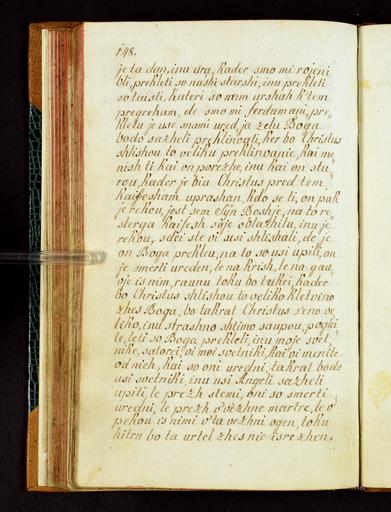 148.
je ta dan, inu ura, kader smo mi rojeni
bli, prekleti so nashi starshi, inu prekleti
so taisti, kateri so nam urshah k'tem
pregreham, de smo mi ferdamani, pre,
kletu je use, snami ured, ja zelu Boga
bodo sazheli preklinati, ker bo Christus
shlishou to veliku preklinvanie, kai me,
nish ti kai on porezhe, inu kai on stu,
rou, kader je biu Christus pred tem
Kaifesham uprashan, kdo se ti, on pak
je rekou, jest sem Syn Boshje, na to re,
sterga Kaifesh soje oblazhilu, inu je
rekou, sdei ste vi susi shlishali, de je
on Boga prekleu, na to so usi upili, on
je smerti ureden, le na krish, le na gau,
oje is nim, raunu toku bo tukei, kader
bo Christus shlishou to veliko kletvino
zhes Boga, bo takrat Christus s'eno ve,
liko, inu strashno shtimo saupou, poglei
te, leti so Boga prekleti, inu moje svet,
nike, satorei vi moi svetniki, kai vi menite
od nieh, kai so oni uredni, takrat bodo
usi svetniki, inu usi Angeli sazheli
upiti, le prezh stemi, oni so smerti
uredni, le prezh v'vezhne martre, le v'
pekou is nimi v'ta vezhni ogen, toku
hitru bo ta urtel zhes nie isrezhen,